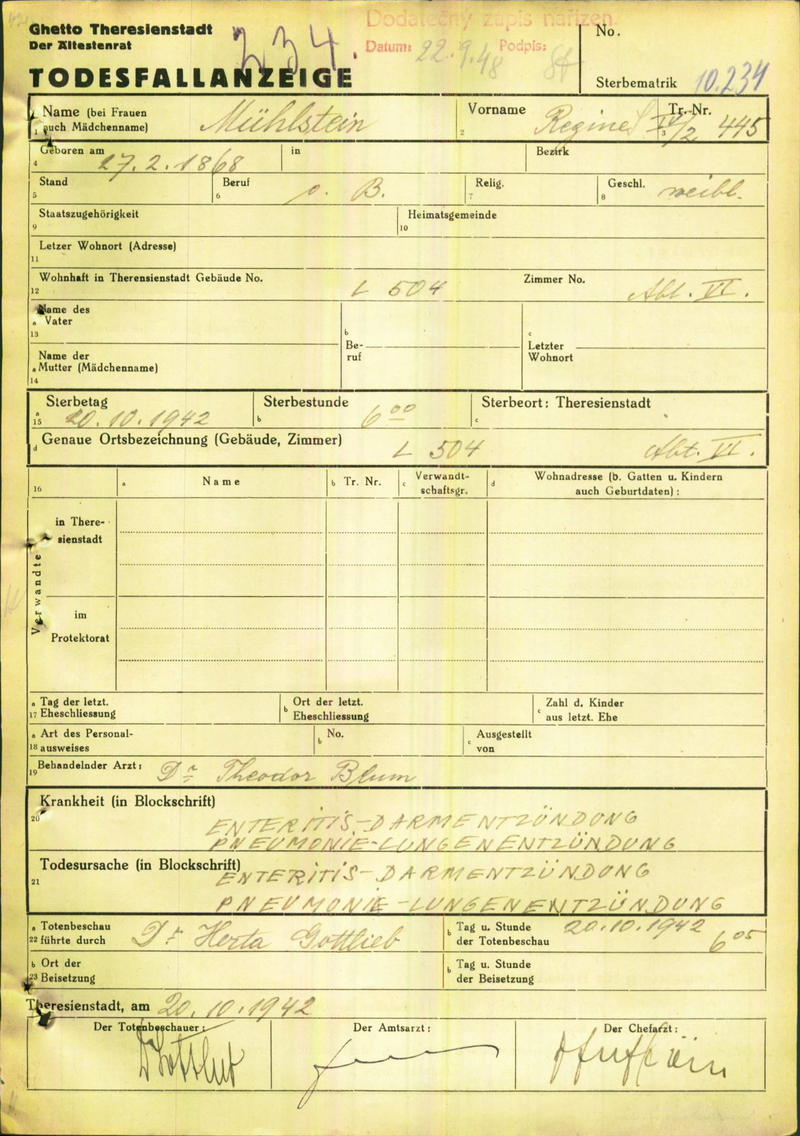 Ghetto Theresienstadt
Der Ältestenrat
TODESFALLANZEIGE
234.
Dodatečný zápis nařízen.
Datum: 22.9.48 Podpis:
No.
Sterbematrik 10.234
1 Name (bei Frauen auch Mädchenname) Mühlstein
2 Vorname Regine
3 Tr.-Nr. IV/2 445
4 Geboren am 27.2.1868 in
Bezirk
5 Stand
6 Beruf o. B.
7 Relig.
8 Geschl. weibl.
9 Staatszugehörigkeit
10 Heimatsgemeinde
11 Letzer Wohnort (Adresse)
12 Wohnhaft in Theresienstadt Gebäude No. L 504 Zimmer No. Abt. VI.
13 a Name des Vater
b Beruf
c Letzter Wohnort
14 a Name der Mutter (Mädchenname)
15 a Sterbetag 20.10.1942
b Sterbestunde 6 00
c Sterbeort: Theresienstadt
d Genaue Ortsbezeichnung (Gebäude, Zimmer) L 504 Abt. VI.
16 a Name b Tr. Nr. c Verwandt-schaftsgr. d Wohnadresse (b. Gatten u. Kindern auch Geburtdaten):
Verwandte
in There-
sienstadt
im
Protektorat
17 a Tag der letzt. Eheschliessung
b Ort der letzt. Eheschliessung
c Zahl d. Kinder aus letzt. Ehe
18 a Art des Personal-ausweises
b No.
c Ausgestellt von
19 Behandelnder Arzt: Dr Theodor Blum
20 Krankheit (in Blockschrift) ENTERITIS-DARMENTZÜNDUNG
PNEUMONIE-LUNGENENTZÜNDUNG
21 Todesursache (in Blockschrift) ENTERITIS-DARMENTZÜNDUNG
PNEUMONIE-LUNGENENTZÜNDUNG
22 a Totenbeschau führte durch Dr Herta Gottlieb
b Tag u. Stunde der Totenbeschau 20.10.1942 6 05
23 b Ort der Beisetzung
b Tag u. Stunde der Beisetzung
Theresienstadt, am 20.10.1942
Der Totenbeschauer: Der Amtsarzt: Der Chefarzt: